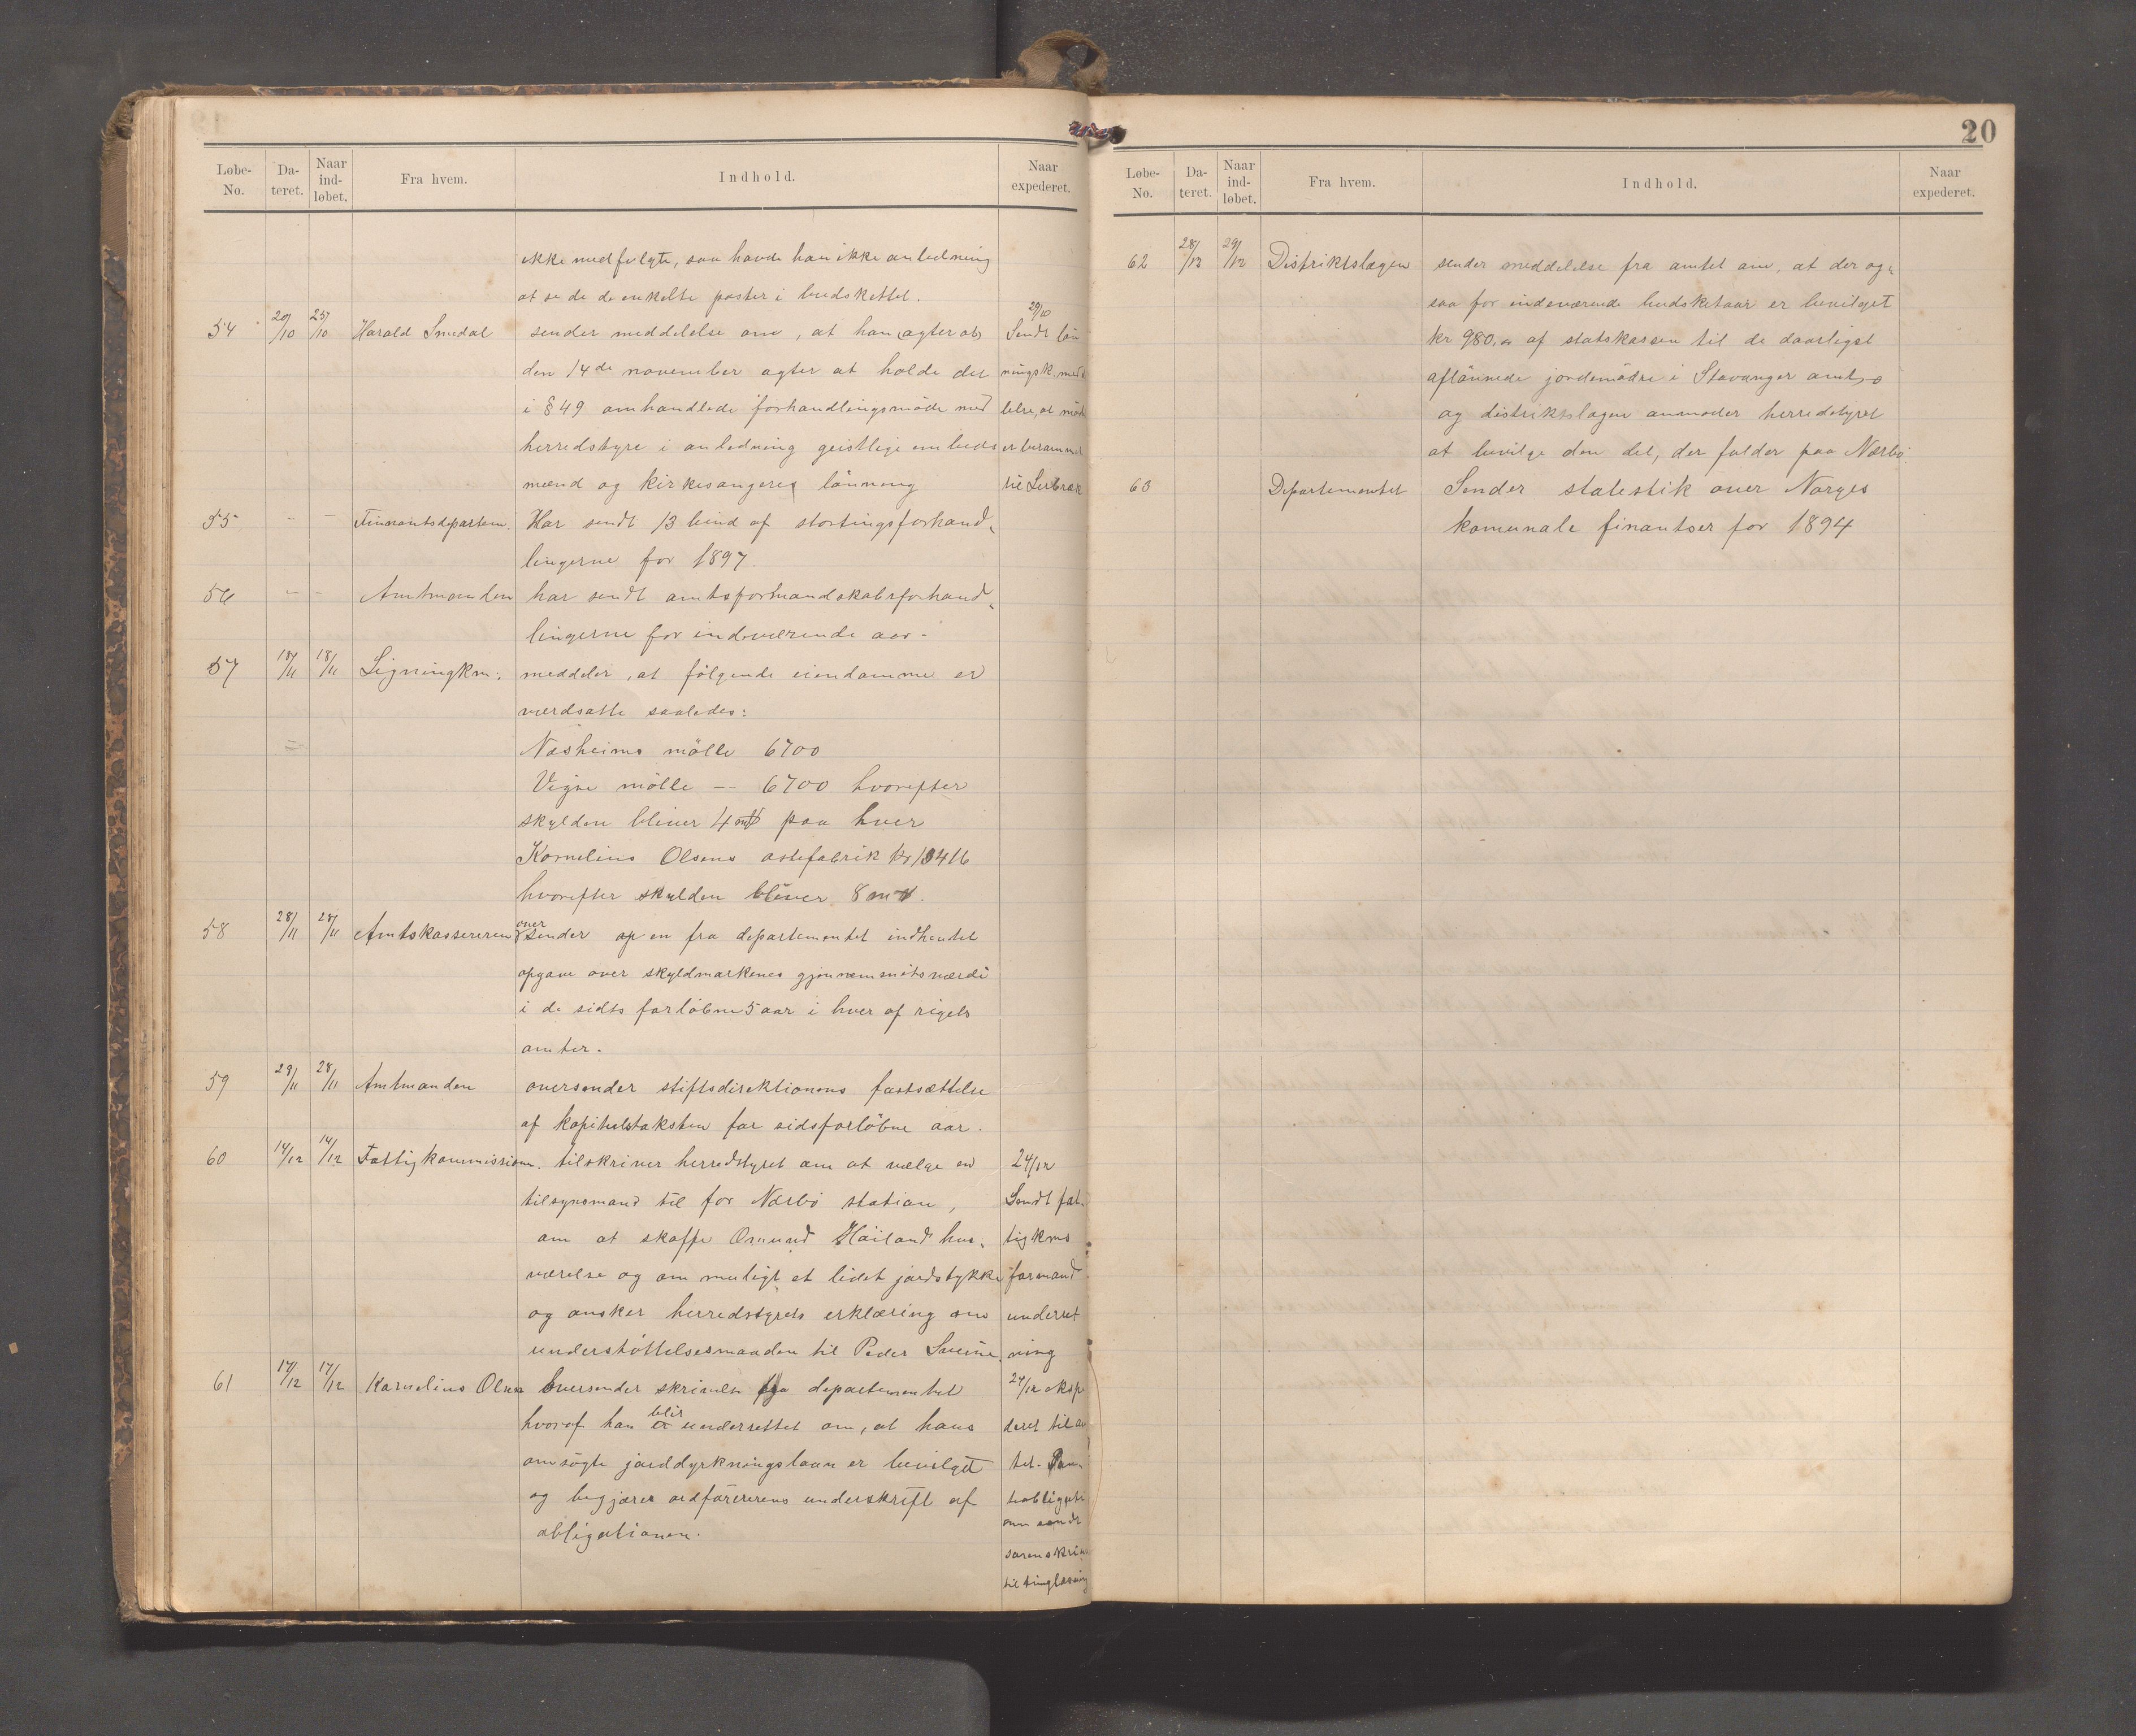 Løbe-No. Da-teret. Naar ind-løbet. Fra hvem. Indhold. Naar expederet.
ikke medfulgte, saa havde han ikke anledning
at se de de enkelte poster i budskettet.
54 20/10 25/10 Harald Smedal sender meddelelse om, at han agter at 29/10 Sendt løn
den 14de november agter at holde det ningsk. med
i § 49 omhandlede forhandlingsmöde med lelse, at möde
herredstyre i anledning geistlige embeds er berammet
mænd og kirkesangeres lönning til
55 - - Finnantsdepartem. Har sendt 13 bind af stortingsforhand„
lingerne for 1897.
56 - - Amtmanden har sendt amtsformandskabsforhand„
lingerne for indeværende aar.
57 18/11 18/11 Ligningkm. meddeler, at følgende eiendomme er
værdsatte saaledes:
Næsheims mölle 6700
Vigre mölle -- 6700 hvorefter
skylden bliver 4 paa hver
Kornelius Olsens ostefabrik kr 13416
hvorefter skylden bliver 8
58 28/11 28/11 Amtskassereren oversender en fra departementet indhentet
opgave over skyldmarkenes gjennemsnitsværdi
i de sidts forløbne 5 aar i hver af rigets
amter.
59 29/11 28/11 Amtmanden oversender stiftsdirektionens fastsættelse
af kapitelstaksten for sidsforløbne aar.
60 14/12 14/12 Fattigkommissionen. tilskriver herredstyret om at vælge en 24/12
tilsynsmand til for Nærbö station, Sendt fat-
om at skaffe Omund Höiland hus„ tigkms
værelse og om muligt et lidet jordstykke formand
og ønsker herredsstyrets erklæring om underret
understöttelsesmaaden til Peder ning
61 17/12 17/12 Kornelius Olsen oversender skrivelse fra departementet 24/12 eksp
hvoraf han blir underrettet om, at hans deret til
omsögte jorddyrkningslaan er bevilget tet. Pan-
og begjærer ordförerens underskrift af tobligati
obligationen. onen sendt
sorenskriv
til tinglæsning
20
Løbe-No. Da-teret. Naar ind-løbet. Fra hvem. Indhold. Naar expederet.
62 28/12 29/12 Distriktslægen sender meddelelse fra amtet om, at der og„
saa for indeværende budsketaar er bevilget
kr 980,00 af statskassen til de daarligst
aflønnede jordemödre i Stavanger amt,
og distriktslægen anmoder herredstyret
at bevilge den del, der falder paa Nærbö
63 Departementet Sender statestik over Norges
komunale finantser for 1894